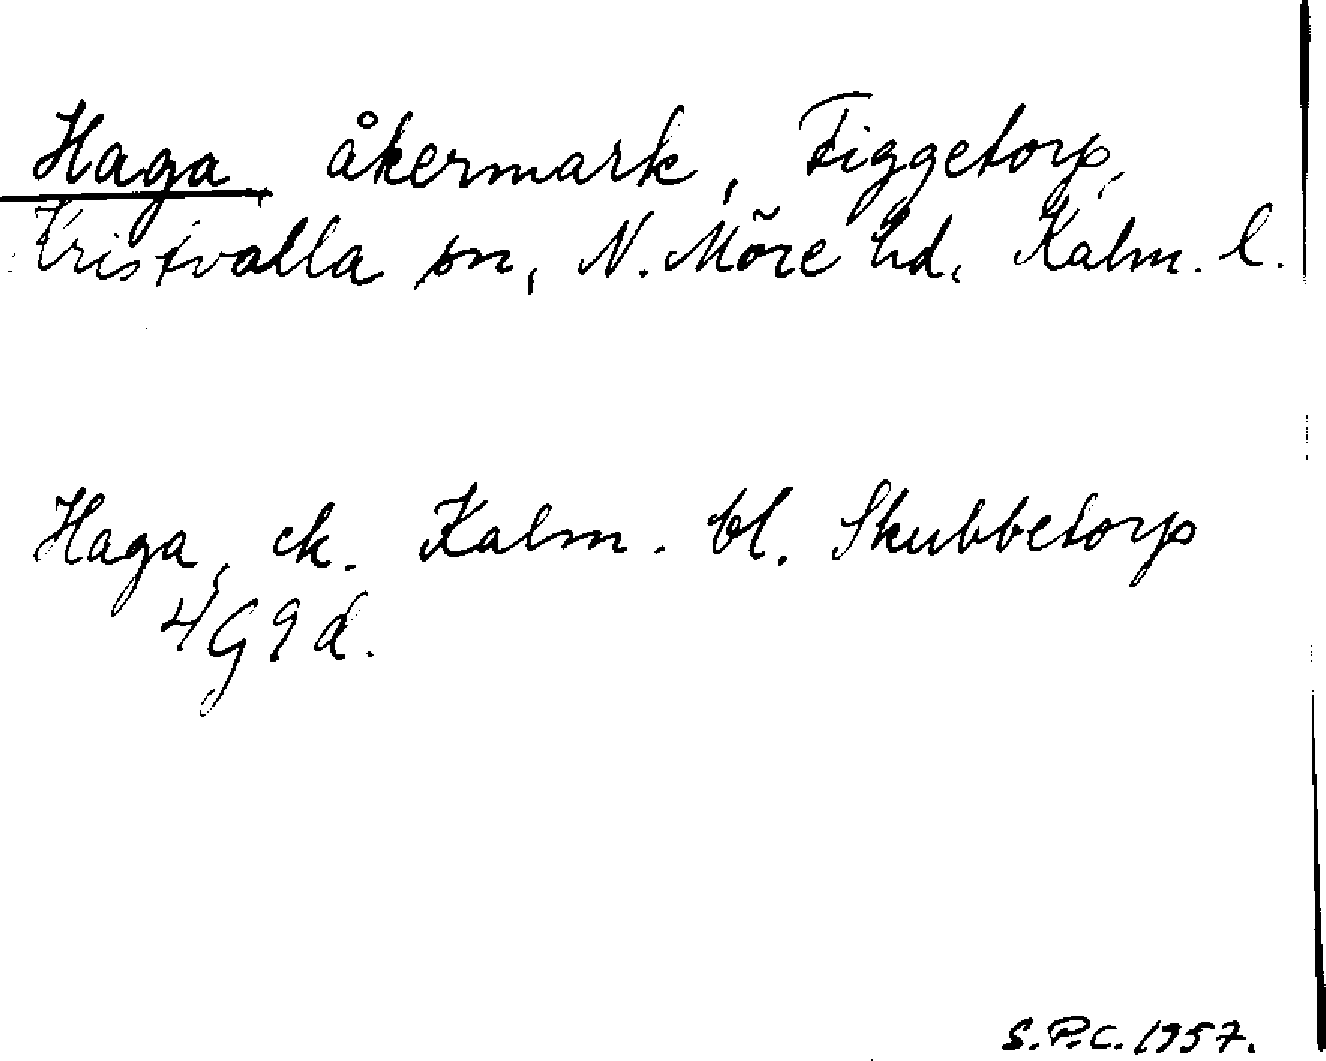 Haga, åkermark, Figgetorp,
Kristvalla sn, N. Möre hd, Kalm. l.
Haga, ek. Kalm. bl. Skubbetorp
4G9d.
S.P.C. 1957.